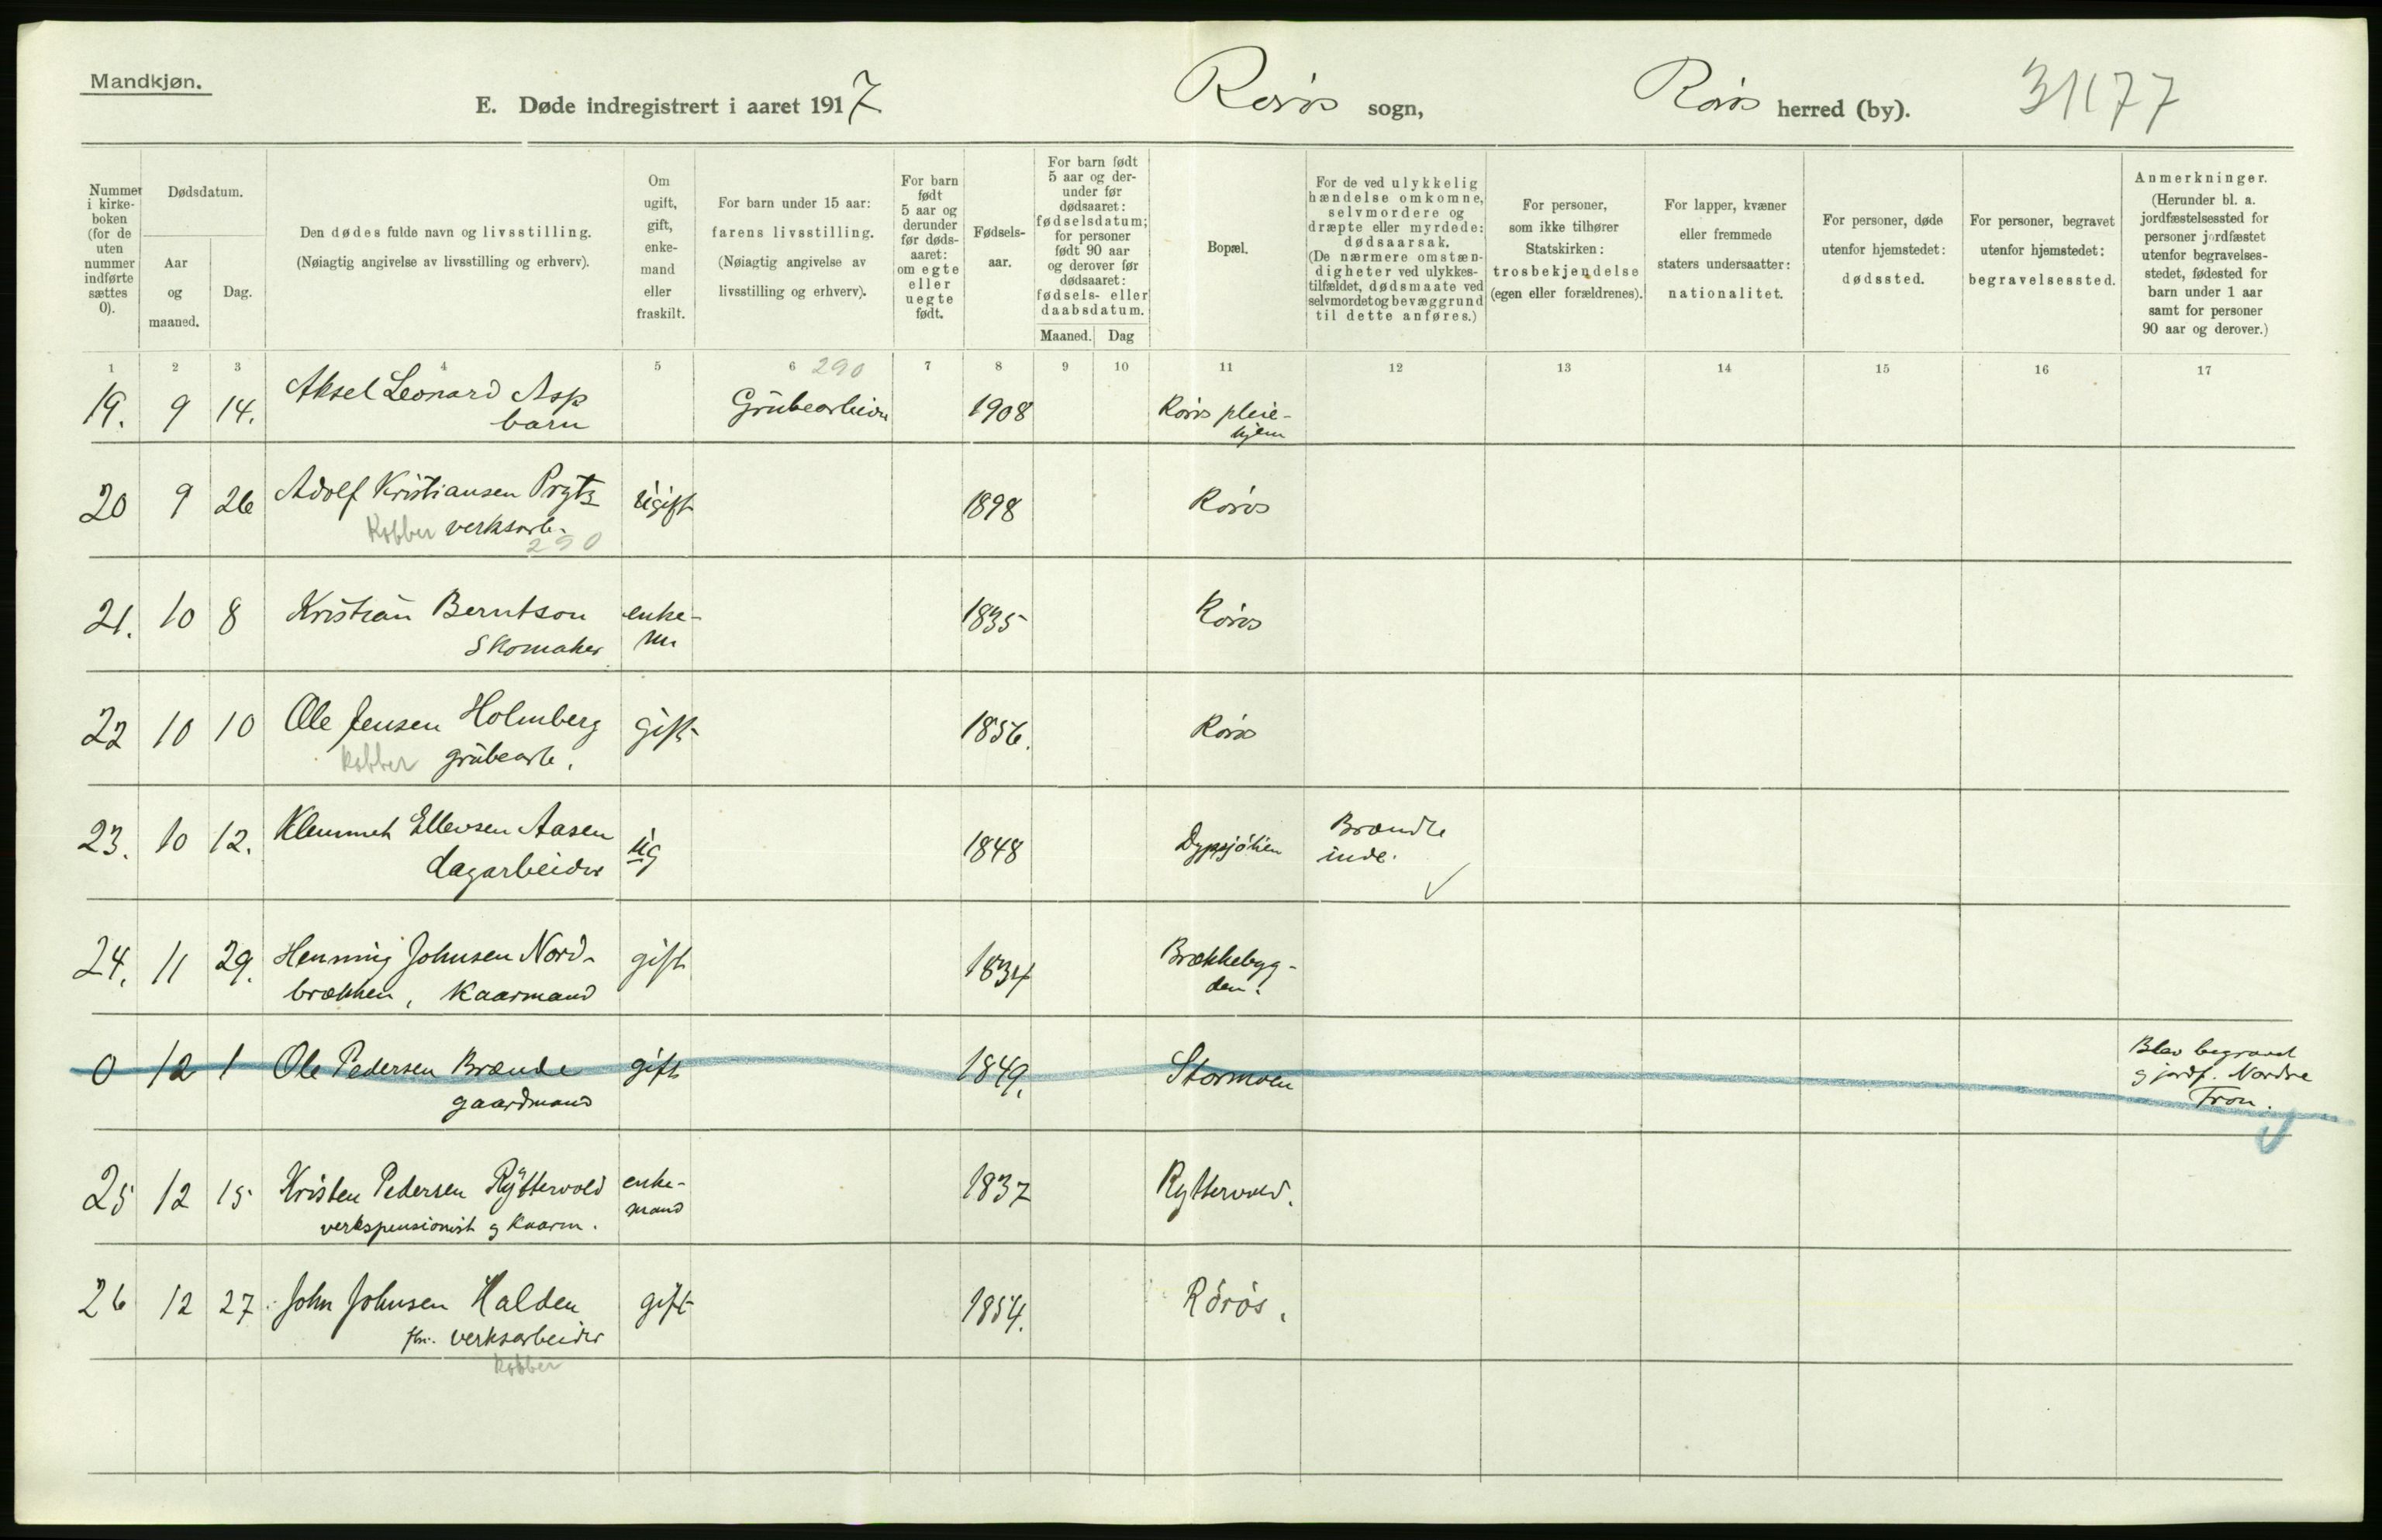 Mandkjøn.
E. Døde indregistrert i aaret 1917 Røros sogn, Røros herred (by). 31177
Nummer i kirke-boken (for de uten nummer indførte sættes 0).
Dødsdatum.
Aar og maaned.
Dag.
Den dødes fulde navn og livsstilling.
(Nøiagtig angivelse av livsstilling og erhverv).
Om ugift, gift, enke-mand eller fraskilt.
For barn under 15 aar: farens livsstilling.
(Nøiagtig angivelse av livsstilling og erhverv).
For barn født 5 aar og derunder før døds-aaret: om egte eller uegte født.
Fødsels-aar.
For barn født 5 aar og der-under før dødsaaret: fødselsdatum; for personer født 90 aar og derover før dødsaaret: fødsels- eller daabsdatum.
Maaned. Dag
Bopæl.
For de ved ulykkelig hændelse omkomne, selvmordere og dræpte eller myrdede: dødsaarsak.
(De nærmere omstæn-digheter ved ulykkes-tilfældet, dødsmaate ved selvmordet og bevæggrund til dette anføres.)
For personer, som ikke tilhører Statskirken: trosbekjendelse (egen eller forældrenes).
For lapper, kvæner eller fremmede staters undersaatter: nationalitet.
For personer, døde utenfor hjemstedet: dødssted.
For personer, begravet utenfor hjemstedet: begravelsessted.
Anmerkninger.
(Herunder bl. a. jordfæstelsessted for personer jordfæstet utenfor begravelses-stedet, fødested for barn under 1 aar samt for personer 90 aar og derover.)
1 2 3 4 5 6 290 7 8 9 10 11 12 13 14 15 16 17
19. 9 14. Aksel Leonard Asp Grubearbeider 1908 Røros pleie-
barn hjem
20 9 26 Adolf Kristiansen Prytz Ugift 1898 Røros
Kobber verksarb.
290
21. 10 8 Kristian Berntson enke- 1835 Røros
Skomaker m
22 10 10 Ole Jensen Holmberg gift 1856. Røros
kobber grubearb.
23. 10 12. Klemmet Ellevsen Aasen ug 1848 Dypsjølien Brændte
dagarbeider inde.
24. 11 29. Henning Johnsen Nord- gift 1834 Brækkebyg-
brækken, Kaarmand den.
0 12 1 Ole Pedersen Brænde gift 1849. Stormoen Blev begravet
gaardmand g jordf. Nordre
Fron.
25 12 15 Kristen Pedersen Ryttervold enke- 1837 Ryttervold.
verkspensionist g Kaarm. mand
26 12 27. John Johnsen Halden gift 1854. Rørøs.
fhv. verksarbeider
kobber